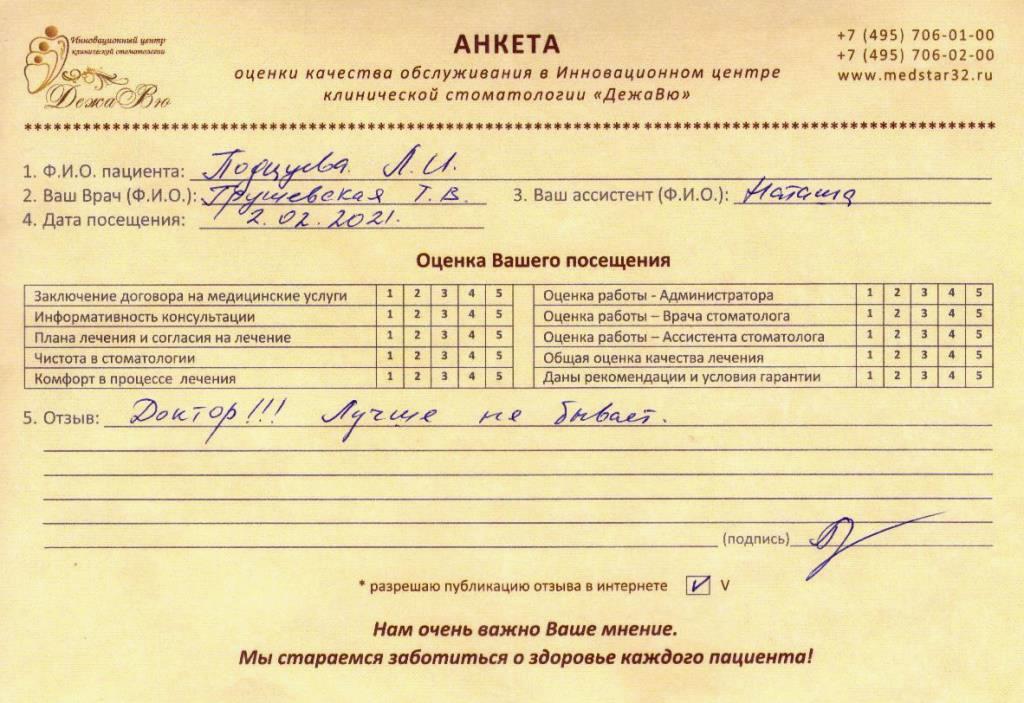 Инновационный центр
клинической стоматологии
ДежаВю
АНКЕТА
оценки качества обслуживания в Инновационном центре
клинической стоматологии «ДежаВю»
+7 (495) 706-01-00
+7 (495) 706-02-00
www.medstar32.ru
1. Ф.И.О. пациента: Л.И.
2. Ваш Врач (Ф.И.О.): Грушевская Т.В. 3. Ваш ассистент (Ф.И.О.): Наташа
4. Дата посещения: 2.02.2021.
Оценка Вашего посещения
Заключение договора на медицинские услуги 1 2 3 4 5 Оценка работы - Администратора 1 2 3 4 5
Информативность консультации 1 2 3 4 5 Оценка работы – Врача стоматолога 1 2 3 4 5
Плана лечения и согласия на лечение 1 2 3 4 5 Оценка работы – Ассистента стоматолога 1 2 3 4 5
Чистота в стоматологии 1 2 3 4 5 Общая оценка качества лечения 1 2 3 4 5
Комфорт в процессе лечения 1 2 3 4 5 Даны рекомендации и условия гарантии 1 2 3 4 5
5. Отзыв: Доктор!!! Лучше не бывает.
(подпись)
* разрешаю публикацию отзыва в интернете V V
Нам очень важно Ваше мнение.
Мы стараемся заботиться о здоровье каждого пациента!